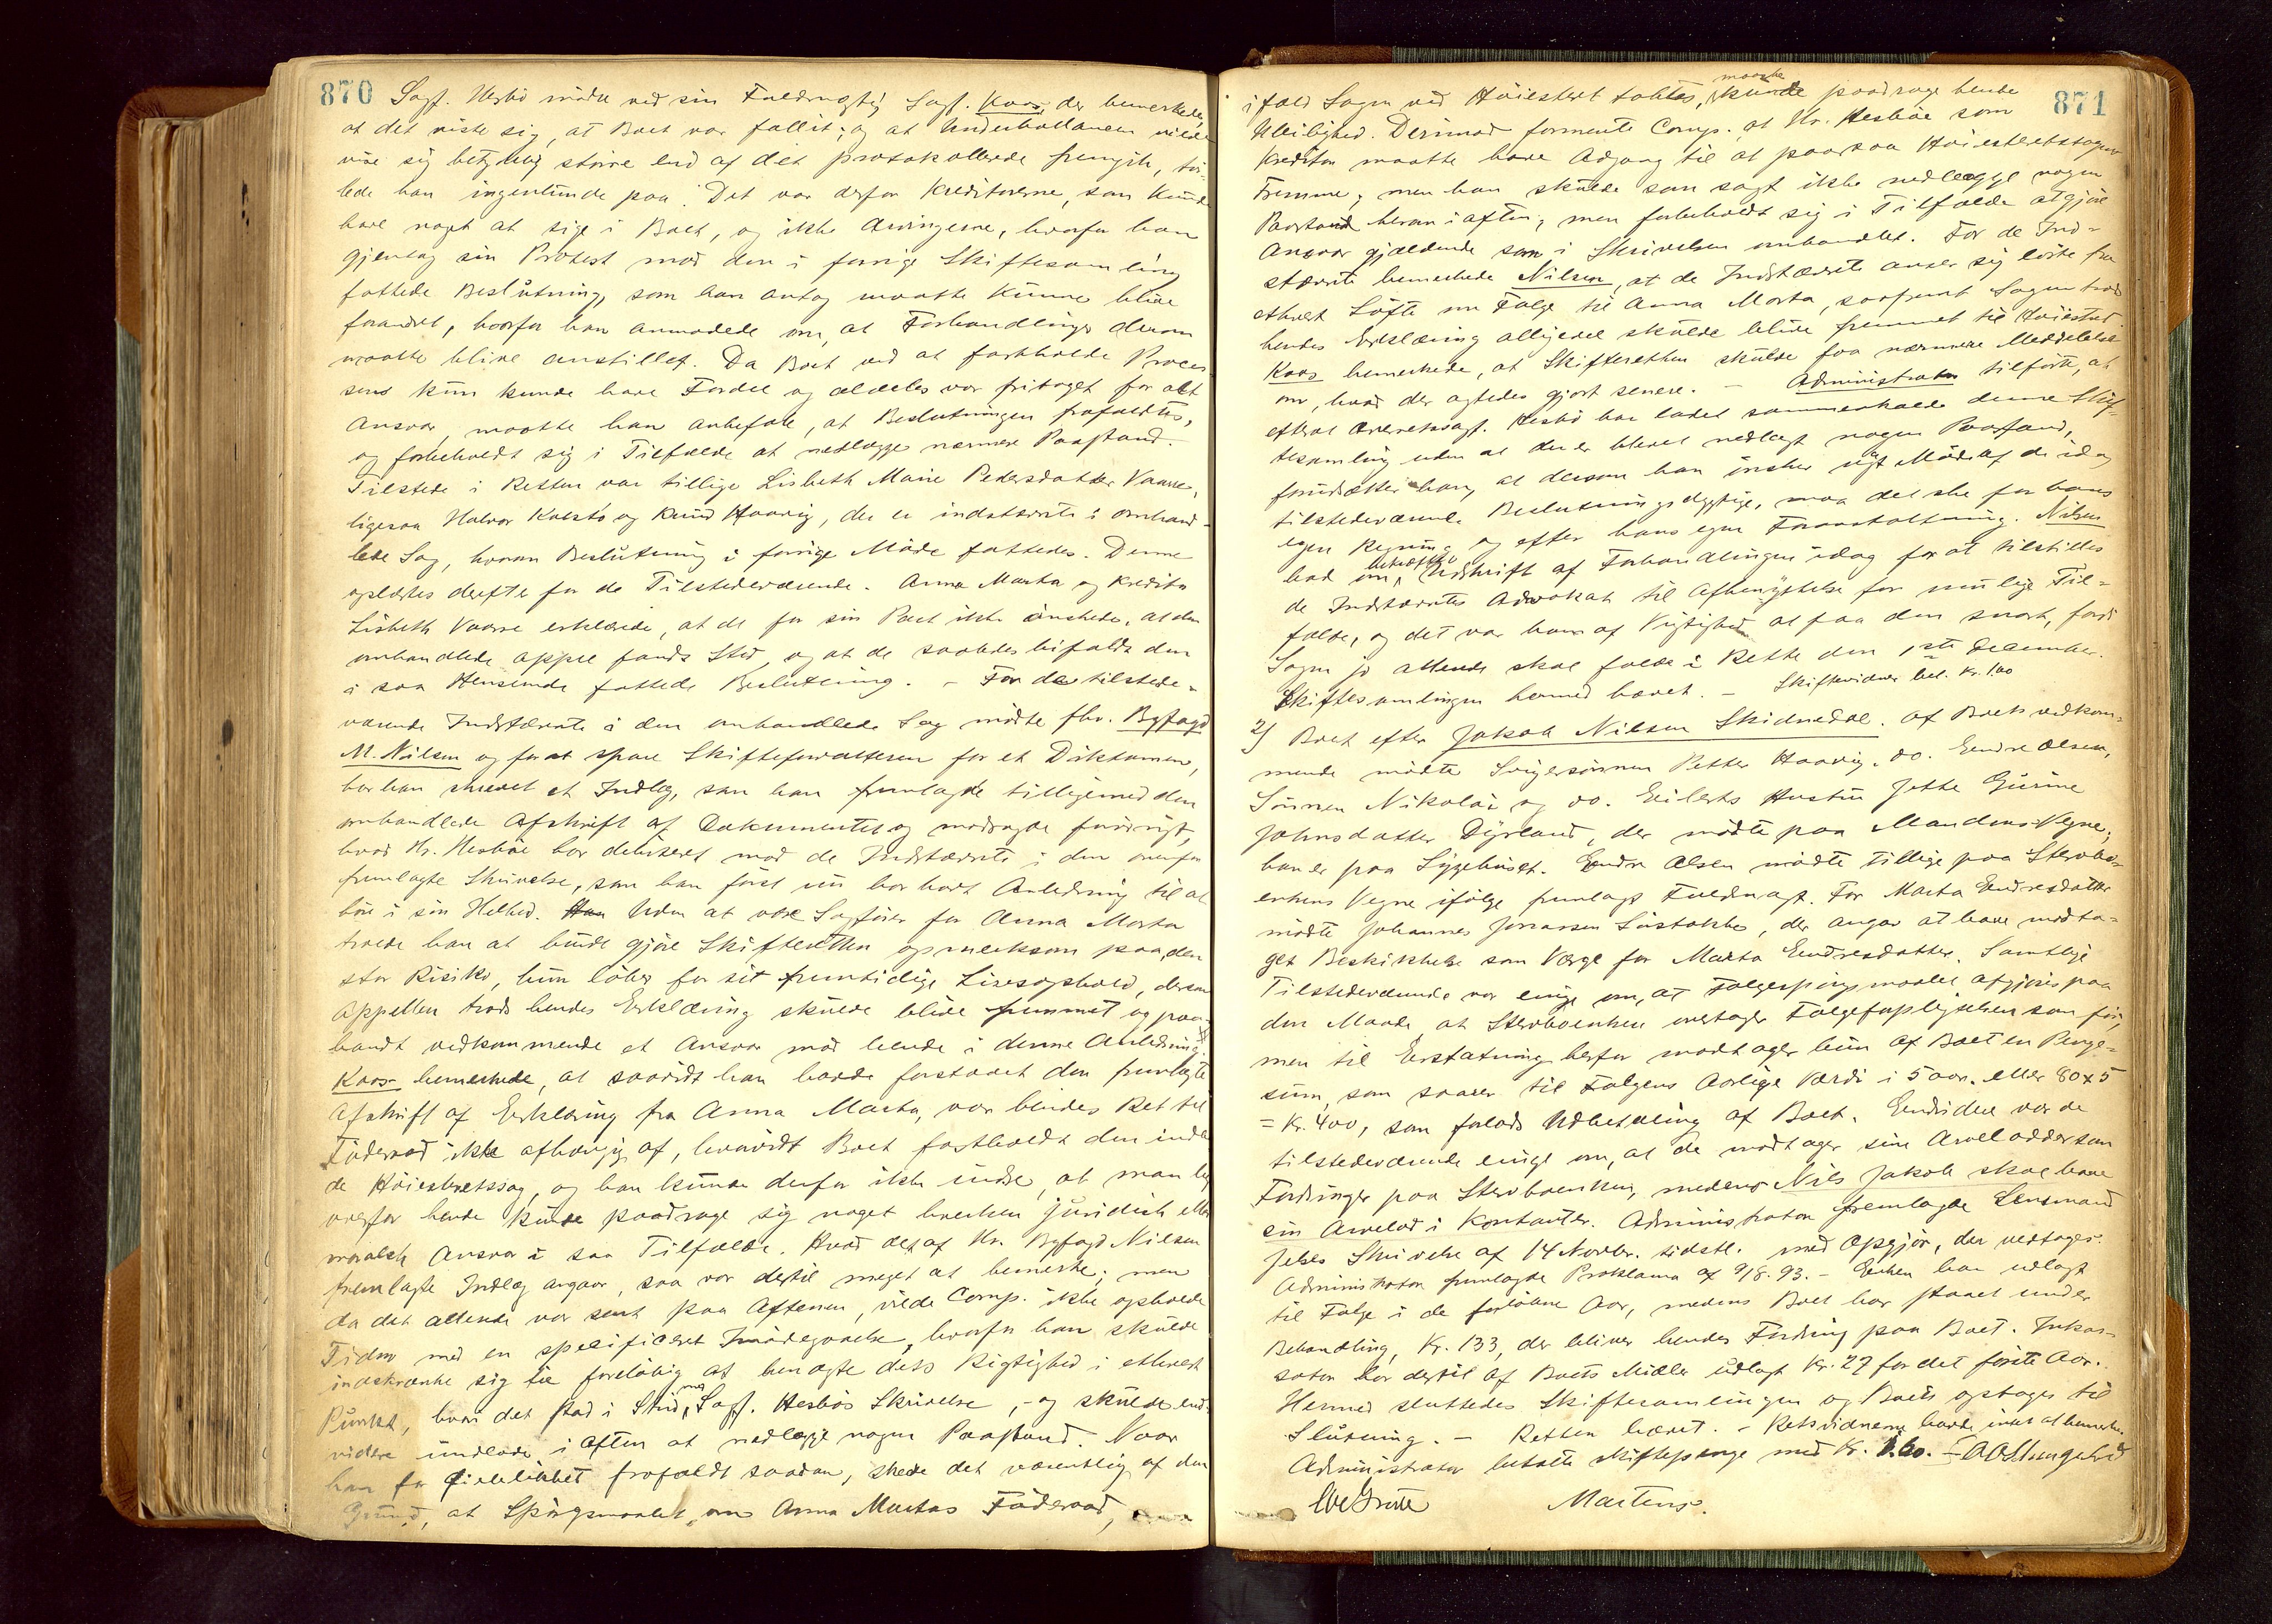 870 Sagf. Hesbö mödte ved sin Fuldmægtig Sagf. Koos, der bemerkede,
at det viste sig, at Boet var fallit; og at Underballancen vilde
vise sig betydelig större end af det protokollerede fremgik, tvi-
lede han ingenlunde paa. Det var derfor Kreditorerne, som kunde
have noget at sige i Boet, og ikke Arvingerne, hvorfor han
gjentog sin Protest mod den i forrige Skiftesamling
fattede Beslutning, som han antog maatte kunne blive
forandret, hvorfor han anmodede om, at Forhandlinger derom
maatte blive anstillet. Da Boet ved at fastholde Proces-
sens kun kunde have Fordel og aldeles var fritaget for alt
Ansvar, maatte han anbefale, at Beslutningen frafaldtes,
og forbeholdt sig i Tilfælde at nedlægge nærmere Paastand.
Tilstede i Retten var tillige Lisbeth Marie Pedersdatter Vaare,
ligesaa Halvor Kalstö og Knud Haavig, der er indstævnte i omhand-
lede Sag, hvorom Beslutning i forrige Möde fattedes. Denne
oplæstes derefter for de Tilstedeværende. Anna Marta og Kreditor
Lisbeth Vaare erklærede, at de for sin Part ikke önskede, at den
omhandlede Appel fandt Sted, og at de saaledes bifaldt den
i saa Henseende fattede Beslutning. – For de tilstede-
værende Indstævnte i den omhandlede Sag mödte fhv. Byfogd
M. Nilsen og for at spare Skifteforvalteren for et Diktamen,
har han skrevet et Indlæg, som han fremlagde tilligemed den
omhandlede Afskrift af Dokumentet og modsagde forövrigt,
hvad Hr. Hesböe har debiteret mod de Indstævnte i den ovenfor
fremlagte Skrivelse, som han först nu har havt Anledning til at
höre i sin Helhed. Uden at være Sagförer for Anna Marta
troede han at burde gjöre Skifteretten opmerksom paa den
stor Risiko, hun löber for sit fremtidige Livesophold, dersom
Appellen trods hendes Erklæring skulde blive fremmet og paa-
bandt vedkommende et Ansvar mod hende i denne Anledning.
Koos bemerkede, at saavidt han havde forstaaet den fremlagte
Afskrift af Erklæring fra Anna Marta, var hendes Ret til
Föderaad ikke afhængig af, hvorvidt Boet fastholdt den indle
de Höiesteretssag, og han kunde derfor ikke indse, at man lig
overfor hende kunde paadrage sig noget hverken juridisk eller
moralsk Ansvar i saa Tilfælde. Hvad det af Hr. Byfogd Nilsen
fremlagte Indlæg angaar, saa var dertil meget at bemerke; men
da det allerede var sent paa Aftenen, vilde Comp. ikke opholde
Tiden med en specificeret Imödegaaelse, hvorfor han skulde
indskrænke sig til foreløbig at benægte dets Rigtighed i ethvert
Punkt, hvor det stod i Strid med Sagf. Hesbös Skrivelse, – og skulde end-
videre undlade i Aften at nedlægge nogen Paastand. Naar
han for Öieblikket frafaldt saadan, skede det væsentlig af den
Grund, at Spörgsmaalet om Anna Martas Föderaad,
871
ifald Sagen ved Höiesteret tabtes, maaske kunde paadrage hende
Uleilighed. Derimod formente Comp. at Hr. Hesböe som
Kreditor maatte have Adgang til at paasaa Höiesteretssagens
Fremme; men han skulde som sagt ikke nedlægge nogen
Paastand herom iaften; men forbeholdt sig i Tilfælde at gjöre
Ansvar gjældende som i Skrivelsen omhandlet. For de Ind-
stævnte bemerkede Nilsen, at de Indstævnte anser sig löste fra
ethvert Löfte om Folge til Anna Marta, saafremt Sagen trods
hendes Erklæring alligevel skulde blive fremmet til Höiesteret
Koos bemerkede, at Skifteretten skulde faa nærmere Meddelelse
om, hvad der agtedes gjort senere. – Administrator tilförte, at
efterat Overretssagf. Hesbö har ladet sammenkalde denne Skif-
tesamling uden at der er blevet nedlagt nogen Paastand,
forudsætter han, at dersom han önsker nyt Möde af de idag
tilstedeværende Beslutningsdygtige, maa det ske for hans
egen Regning og efter hans egen Foranstaltning. Nilsen
bad om bekræftet Udskrift af Forhandlingen idag for at tilstilles
de Indstævntes Advokat til Afbenyttelse for mulige Til-
fælde, og det var ham af Vigtighed at faa den snart, fordi
Sagen jo allerede skal falde i Rette den 1ste December.
Skiftesamlingen hermed hævet. – Skiftevidner bet. Kr. 1.00
2) Boet efter Jakob Nilsen Skidnedal. Af Boets vedkom-
mende mödte Svigersönnen Petter Haavig, do. Eendre Olsen,
Sönnen Nikolai og do. Eilerts Hustru Jette Gurine
Johnsdatter Dyrland, der mödte paa Mandens Vegne;
han er paa Sygehuset. Endre Olsen mödte tillige paa Stervbo-
enkens Vegne ifölge fremlagt Fuldmagt. For Marta Eendresdatter
mödte Johannes Jonassen Sustakke, der angav at have modta-
get Beskikkelse som Værge for Marta Eendresdatter. Samtlige
Tilstedeværende var enige om, at Folgespörgsmaalet afgjöres paa
den Maade at Stervboenken overtager Folgeforpligtelsen som för,
men til Erstatning herfor modtager hun af Boet en Penge-
sum, som svarer til Folgens Aarlige Værdi i 5 aar. eller 80 x 5
= Kr. 400, som forlods Udbetaling af Boet. Eendvidere var de
tilstedeværende enige om, at de modtager sine Arvelodder som
Fordringer paa Stervboenken, medens Nils Jakob skal have
sin Arvelod i Kontanter. Administrator fremlagde Lensmand
Jebes Skrivelse af 14 Novbr. sidstl. med Opgjör, der vedtages.
Administrator fremlagde Proklama af 9/8. 93. – Enken har udlagt
til Folge i de forlöbne Aar, medens Boet har staaet under
Behandling, Kr. 133, der bliver hendes Fordring paa Boet. Inkas-
sator har dertil af Boets Midler udlagt Kr. 27 for det förste Aar.
Hermed sluttedes Skiftesamlingen og Boets optages til
Slutning. – Retten hævet. – Retsvidnerne havde intet at bemerke.
Administrator betalte Skiftepenge med Kr. 1.60. –
Martens.